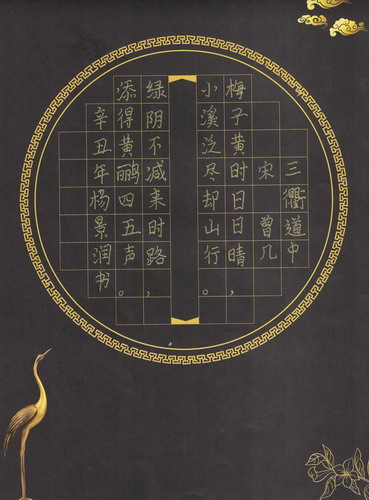 三衢道中
宋 曾几
梅子黄时日日晴，
小溪泛尽却山行。
绿阴不减来时路，
添得黄鹂四五声。
辛丑年杨景润书